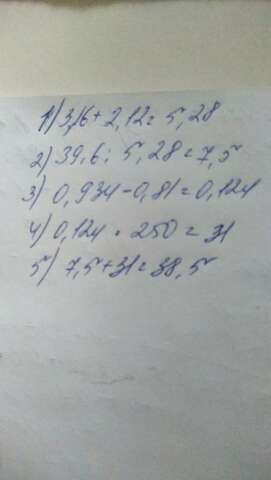 1) 3,16 + 2,12 = 5,28
2) 39,6 : 5,28 = 7,5
3) 0,934 - 0,81 = 0,124
4) 0,124 · 250 = 31
5) 7,5 + 31 = 38,5